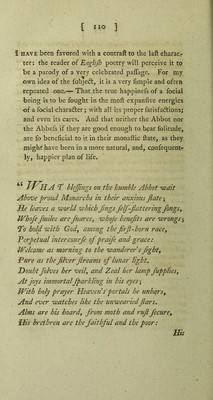 [ 110 ]
I HAVE been favored with a contrast to the last charac-
ter: the reader of English poetry will perceive it to
be a parody of a very celebrated passage. For my
own idea of the subject, it is a very simple and often
repeated one.—That the true happiness of a social
being is to be sought in the most expansive energies
of a social character; with all its proper satisfactions;
and even its cares. And that neither the Abbot nor
the Abbess if they are good enough to bear solitude,
are so beneficial to it in their monastic state, as they
might have been in a more natural, and, consequent-
ly, happier plan of life.
“ WHAT blessings on the humble Abbot wait
Above proud Monarchs in their anxious state;
He leaves a world which stings self-flattering
Whose smiles are snares, whose benefits are wrongs;
To hold with God, among the first-born race,
Perpetual intercourse of praise and grace:
Welcome as morning to the wanderer's sight,
Pure as the silver streams of lunar light.
Doubt solves her veil, and Zeal her lamp supplies,
At joys immortal sparkling in his eyes;
With holy prayer Heaven's portals he unbars,
And ever watches like the unwearied stars.
Alms are his hoard, from moth and rust secure,
His brethren are the faithful and the poor:
His